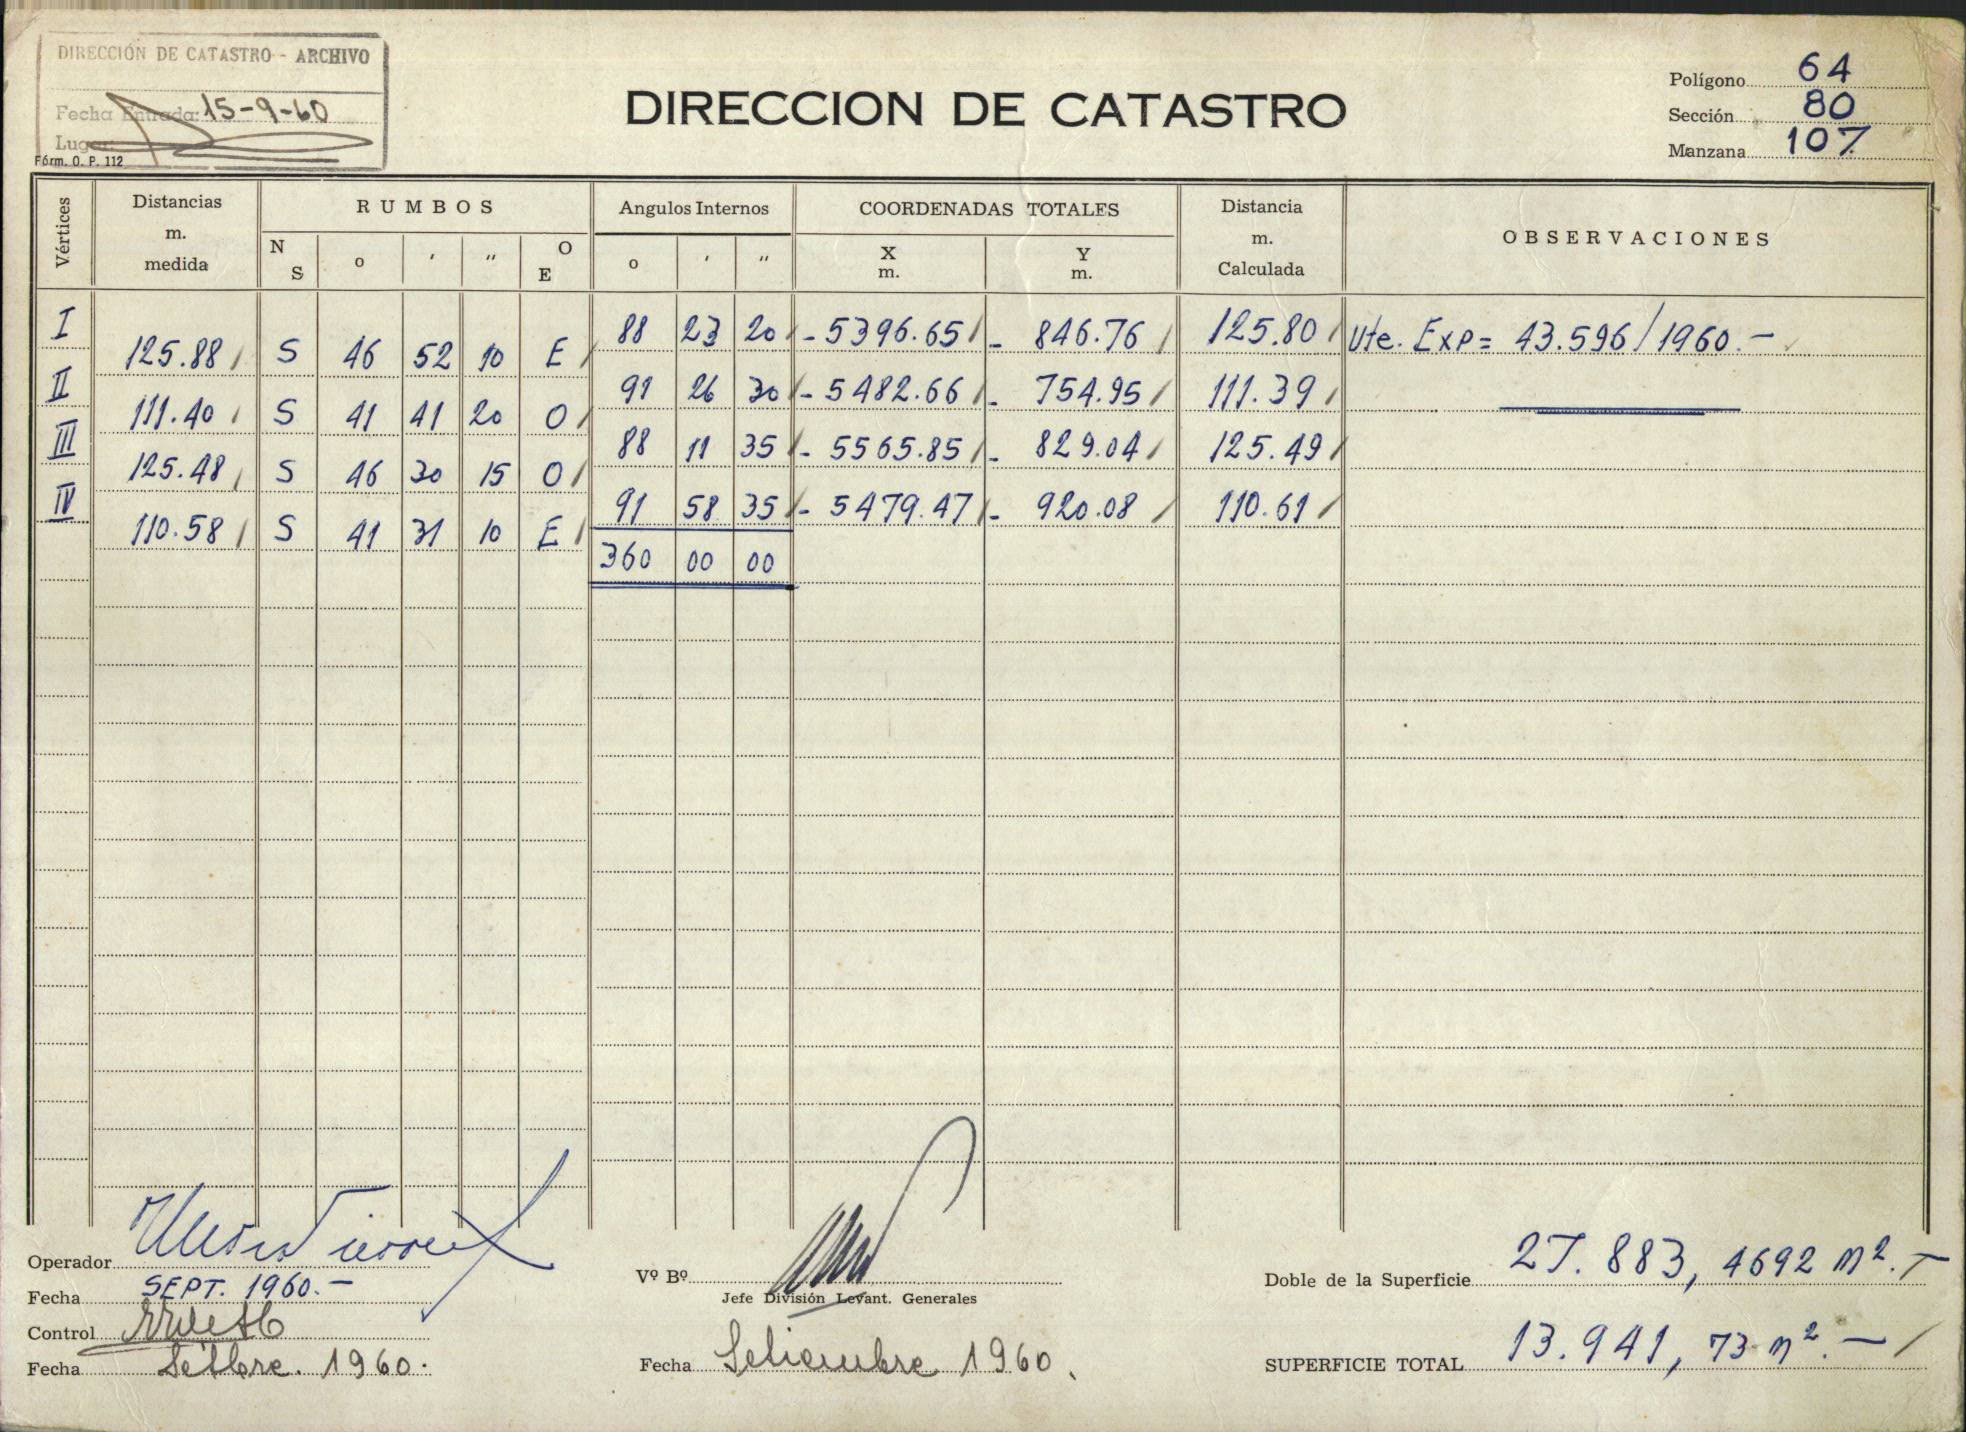 DIRECCIÓN DE CATASTRO - ARCHIVO
Fecha Entrada: 15-9-60
Lugar:
Fórm. O. P. 112
DIRECCION DE CATASTRO
Polígono 64
Sección 80
Manzana 107
Vértices
Distancias m. medida
RUMBOS
N S o ' " O E
Angulos Internos
o ' "
COORDENADAS TOTALES
X m. Y m.
Distancia m. Calculada
OBSERVACIONES
I 88 23 20 - 5396.65 - 846.76 125.80 Vte. Exp= 43.596/1960.-
125.88 S 46 52 10 E
II 91 26 30 - 5482.66 - 754.95 111.39
111.40 S 41 41 20 O
III 88 11 35 - 5565.85 - 829.04 125.49
125.48 S 46 30 15 O
IV 91 58 35 - 5479.47 - 920.08 110.61
110.58 S 41 31 10 E
360 00 00
Operador
Fecha SEPT. 1960.-
Control
Fecha Setbre. 1960.
Vº Bº
Jefe División Levant. Generales
Fecha Setiembre 1960.
Doble de la Superficie 27.883,4692 m².-
SUPERFICIE TOTAL 13.941,73 m².-